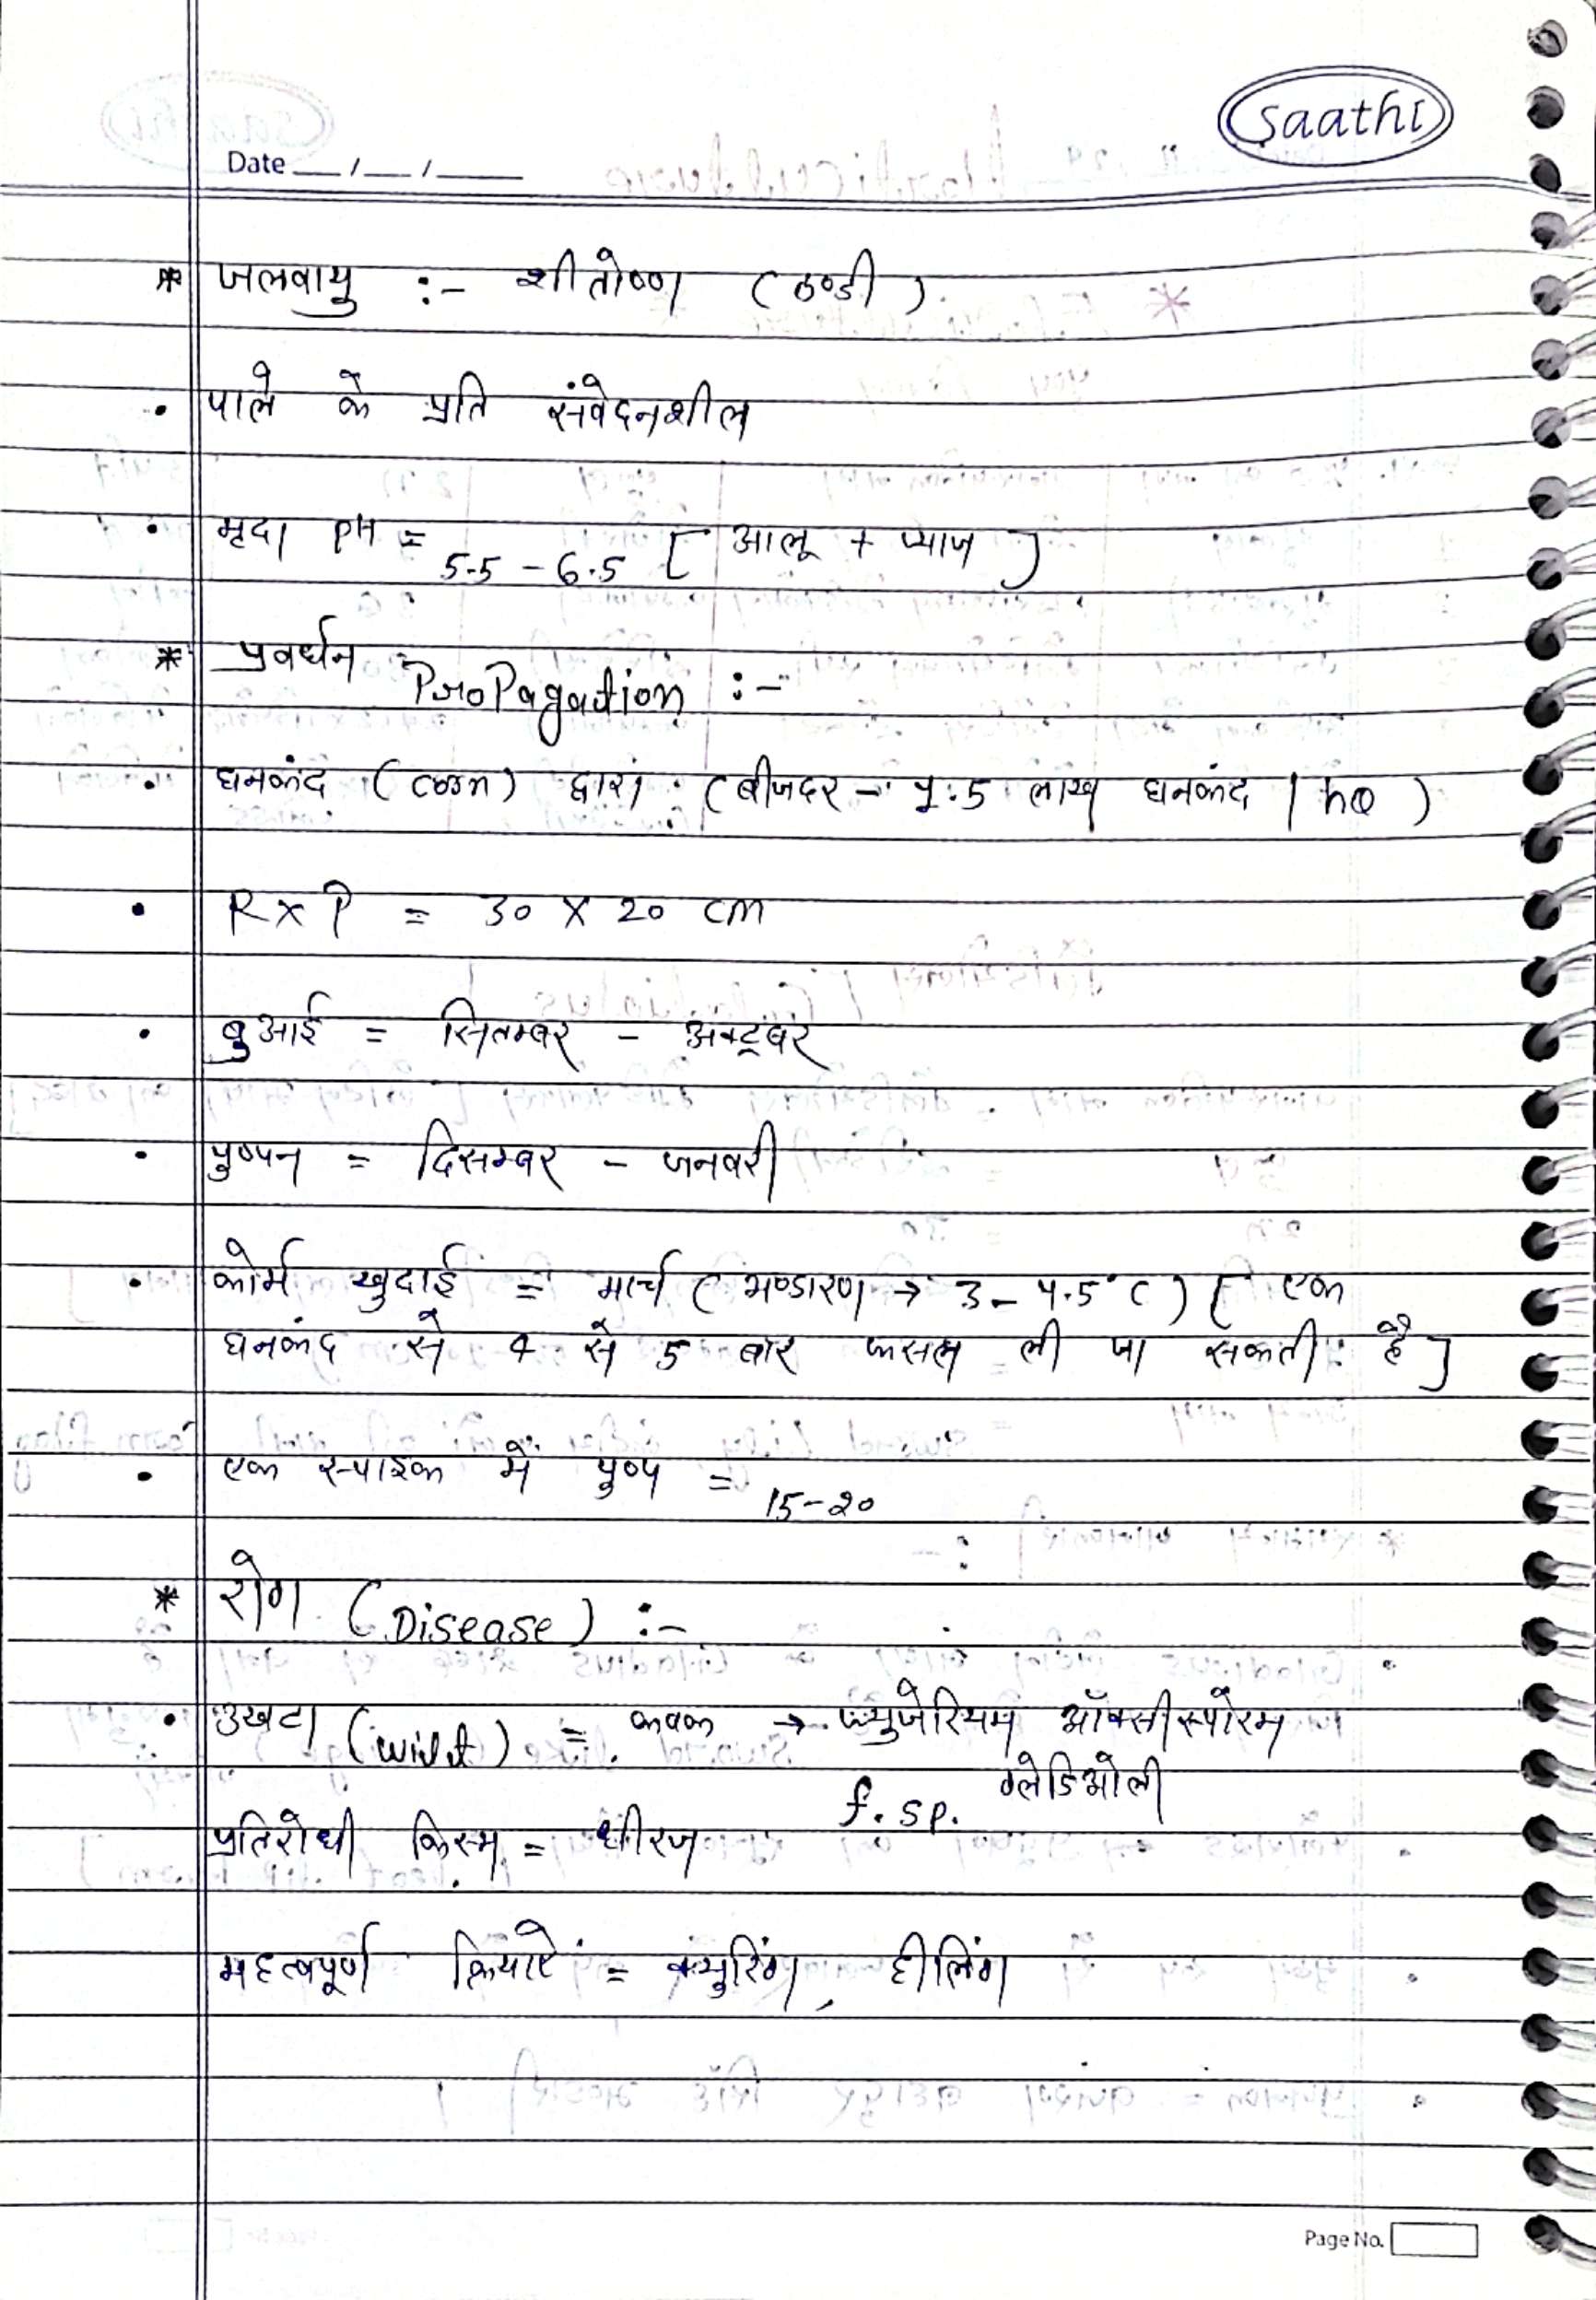 saathi
Date __/__/____
* जलवायु :- शीतोष्ण (ठण्डी)
• पाले के प्रति संवेदनशील
• मृदा PH = 5.5 - 6.5 [आलू + प्याज]
* प्रवर्धन Propagation :-
• घनकंद (corm) द्वारा (बीजदर - 1.5 लाख घनकंद / ha)
• R x P = 30 x 20 cm
• बुआई = सितम्बर - अक्टूबर
• पुष्पन = दिसम्बर - जनवरी
• कोर्म खुदाई = मार्च (भण्डारण → 3 - 4.5°C) [एक
घनकंद से 4 से 5 बार फसल ली जा सकती है]
• एक स्पाइक में पुष्प = 15-20
* रोग (Disease) :-
• उखटा (wilt) = कवक → फ्युजेरियम ऑक्सीस्पोरम
f. sp. ग्लेडिओली
प्रतिरोधी किस्म = धीरज
महत्वपूर्ण क्रियाऐं = क्युरिंग, हीलिंग
Page No.